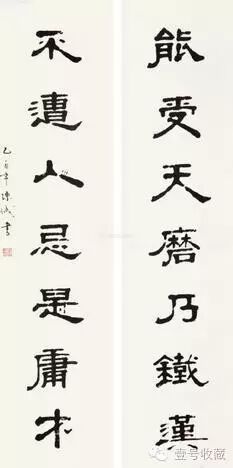 能受天磨乃鐵漢
不遭人忌是庸才
壹号收藏